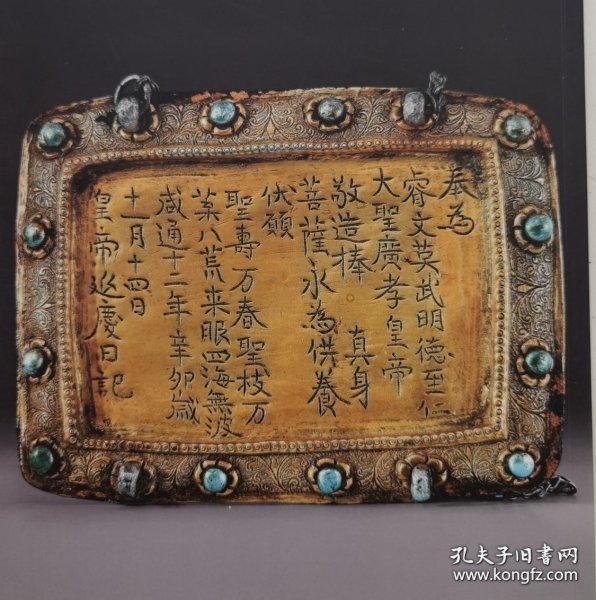 奉為
睿文英武明德至仁
大聖廣孝皇帝
敬造捧真身
菩薩永為供養
伏願
聖壽万春聖枝万
葉八荒来服四海無波
咸通十二年辛卯歲
十一月十四日
皇帝延慶日記
孔夫子旧书网
www.kongfz.com